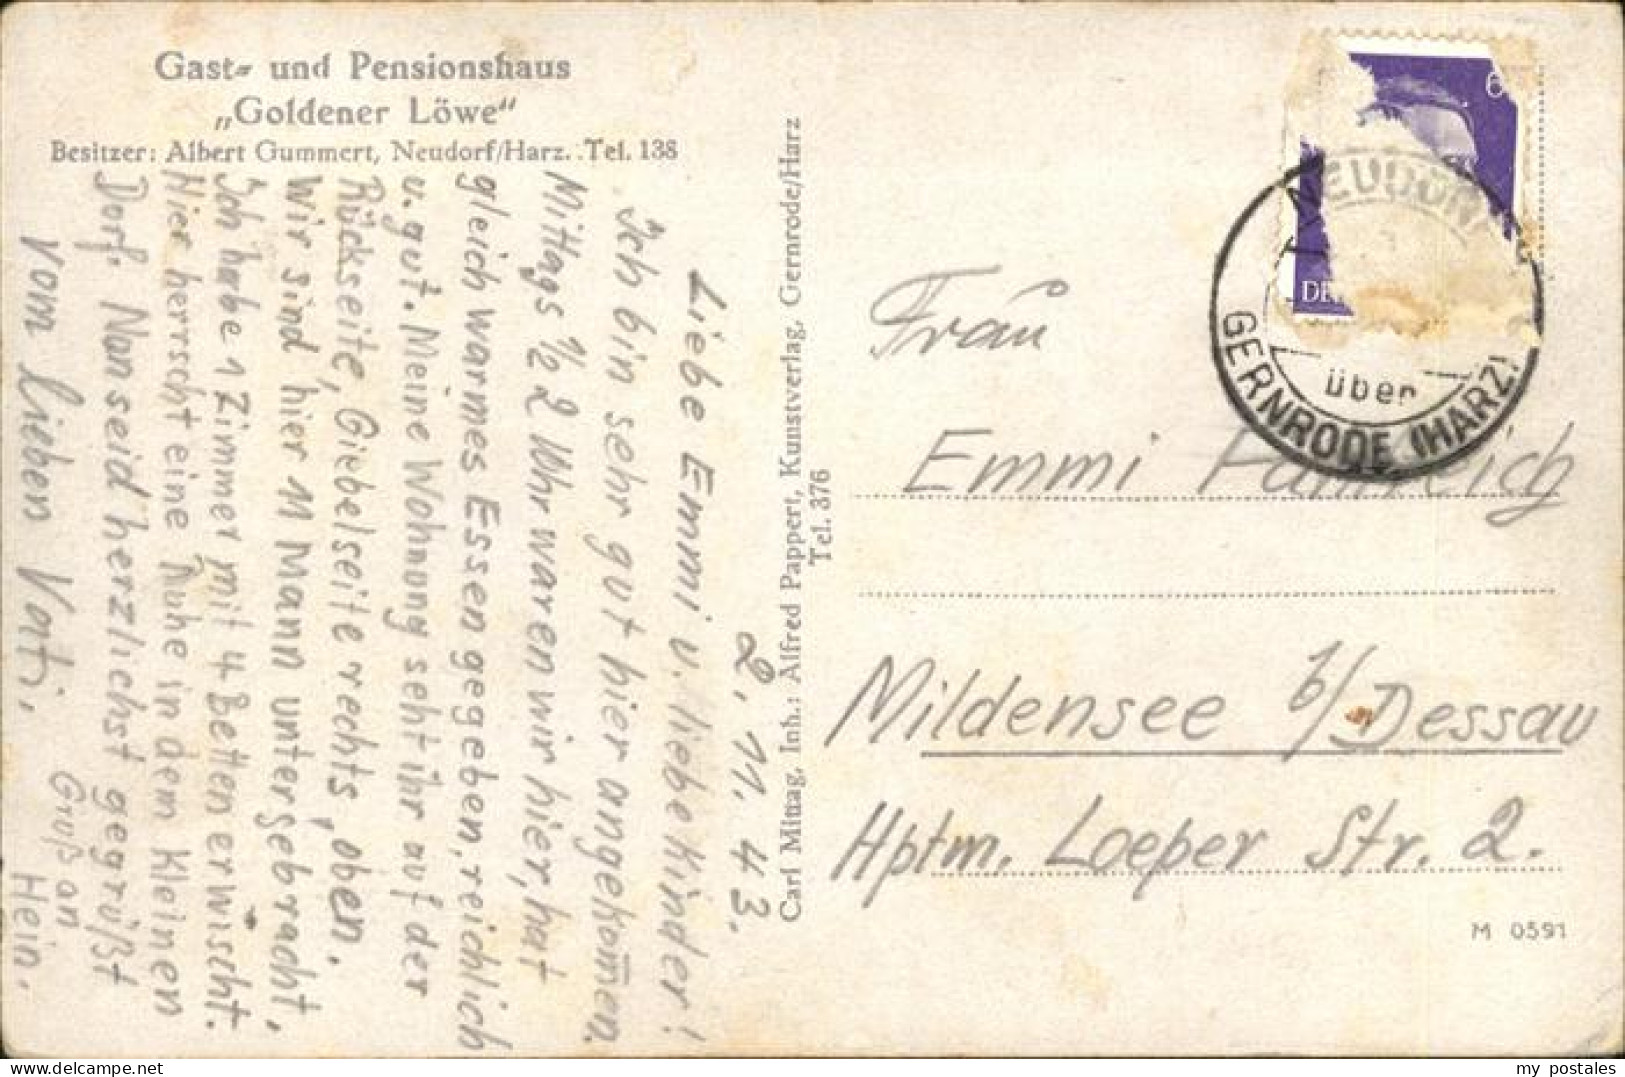 Gast- und Pensionshaus
„Goldener Löwe"
Besitzer: Albert Gummert, Neudorf/Harz. Tel. 138
2. 11. 43.
Liebe Emmi u. liebe Kinder!
Ich bin sehr gut hier angekom̅en.
Mittags ½ 2 Uhr waren wir hier, hat
gleich warmes Essen gegeben, reichlich
u. gut. Meine Wohnung seht ihr auf der
Rückseite, Giebelseite rechts, oben.
Wir sind hier 11 Mann untergebracht,
Ich habe 1 Zimmer mit 4 Betten erwischt.
Hier herrscht eine Ruhe in dem kleinen
Dorf. Nun seid herzlichst gegrüßt
vom lieben Vati,
Gruß an
Hein.
Carl Mittag, Inh.: Alfred Pappert, Kunstverlag, Gernrode/Harz
Tel. 376
6
DE
NEUDORF
über
GERNRODE (HARZ)
Frau
Emmi
Mildensee b/Dessau
Hptm. Loeper Str. 2.
M 0591
my postales